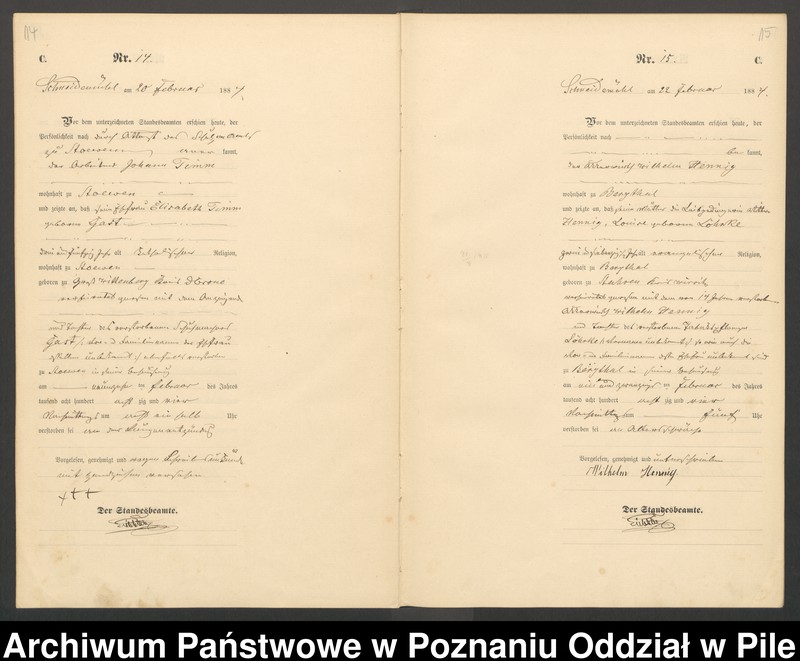 14
C. Nr. 14.
Schneidemühl am 20 Februar 1884.
Vor dem unterzeichneten Standesbeamten erschien heute, der
Persönlichkeit nach durch Attest des Schulzenamts
zu Stoewen kannt,
der Arbeiter Johann Timm
wohnhaft zu Stoewen
und zeigte an, daß seine Ehefrau Elisabeth Timm
geborene Gast
drei und fünfzig Jahr alt katholischer Religion,
wohnhaft zu Stoewen
geboren zu Groß Wittenberg Kreis Dt Crone
verheirathet gewesen mit dem Anzeigenden
und Tochter des verstorbenen
Gast
zu Stoewen in seiner Behausung
am neunzehn ten Februar des Jahres
tausend acht hundert acht zig und vier
Vormittags um acht ein halb Uhr
verstorben sei an der Lungenentzündung
Vorgelesen, genehmigt und wegen Schreibensunkunde
mit Handzeichen versehen
+++
Der Standesbeamte.
15
Nr. 15. C.
Schneidemühl am 22 Februar 1884.
Vor dem unterzeichneten Standesbeamten erschien heute, der
Persönlichkeit nach
be kannt,
der Ackerwirth Wilhelm Hennig
wohnhaft zu Bergthal
und zeigte an, daß seine Mutter die Leibgedingerin Wittwe
Hennig, Louise geborene Löhrke
Jahr alt evangelischer Religion,
wohnhaft zu Bergthal
geboren zu
verheirathet gewesen mit dem vor 14 Jahren verstorbenen
Ackerwirth Wilhelm Hennig
und Tochter des verstorbenen
Löhrke
zu Bergthal in seiner Behausung
am ein und zwanzigsten Februar des Jahres
tausend acht hundert acht zig und vier
Nachmittags um fünf Uhr
verstorben sei an Altersschwäche
Vorgelesen, genehmigt und unterschrieben
Wilhelm Hennig
Der Standesbeamte.
Archiwum Państwowe w Poznaniu Oddział w Pile